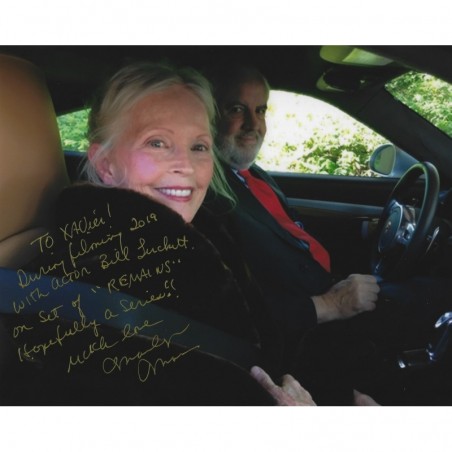 To XAVier!
During filming 2019
with actor Bill Luckett
on Set of "REMAINS"
(Hopefully a Series"!
Much love